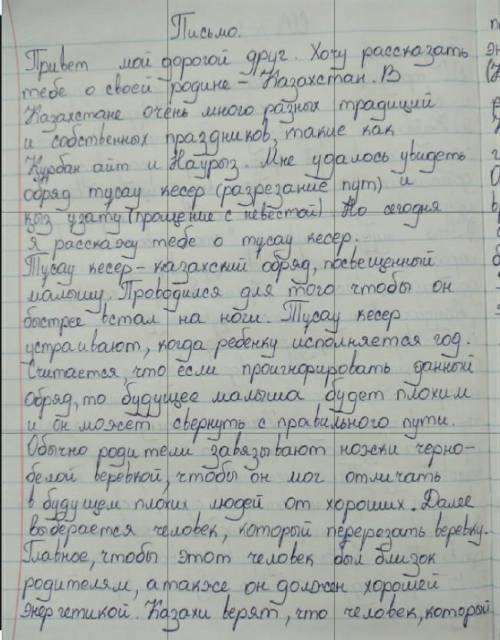 Письмо.
Привет мой дорогой друг. Хочу рассказать
тебе о своей родине - Казахстан. В
Казахстане очень много разных традиций
и собственных праздников, такие как
Курбан айт и Наурыз. Мне удалось увидеть
обряд тусау кесер (разрезание пут) и
қыз узату (прощение с невестой) Но сегодня
я расскажу тебе о тусау кесер.
Тусау кесер - казахский обряд, посвещенный
малышу. Проводился для того чтобы он
быстрее встал на ноги. Тусау кесер
устраивают, когда ребенку исполняется год.
Считается, что если проигнорировать данный
обряд, то будущее малыша будет плохим
и он может свернуть с правильного пути.
Обычно родители завязывают ножки черно-
белой веревкой, чтобы он мог отличать
в будущем плохих людей от хороших. Далее
выберается человек, который перерезать веревку.
Главное, чтобы этот человек был близок
родителям, а также он должен хорошей
энергетикой. Казахи верят, что человек, который